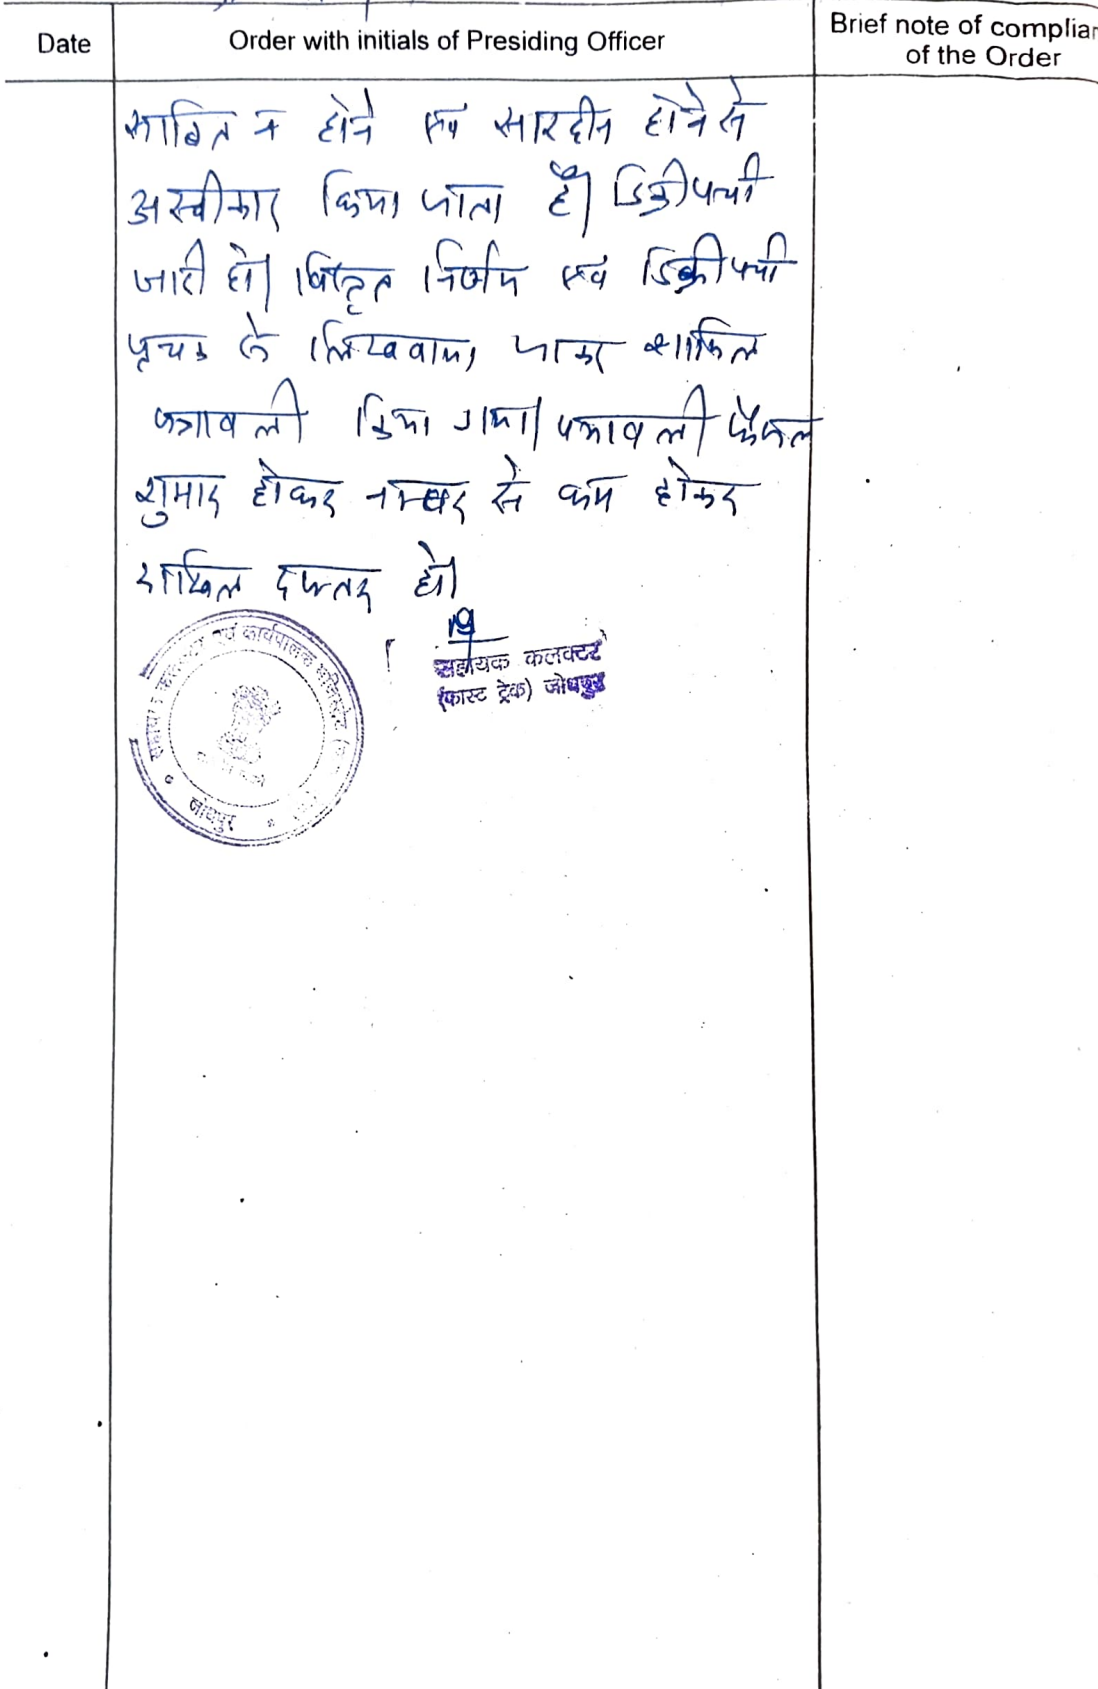 Date
Order with initials of Presiding Officer
Brief note of complian
of the Order
साबित न होने एवं सारहीन होने से
अस्वीकार किया जाता है। डिक्री पर्चा
जारी हो। विस्तृत निर्णय एवं डिक्री पर्चा
पृथक से लिखवाया जाकर शामिल
पत्रावली किया गया। पत्रावली फैसल
शुमार होकर नम्बर से कम होकर
दाखिल दफ्तर हो।
सहायक कलक्टर
(फास्ट ट्रेक) जोधपुर
एवं कार्यपालक
जोधपुर